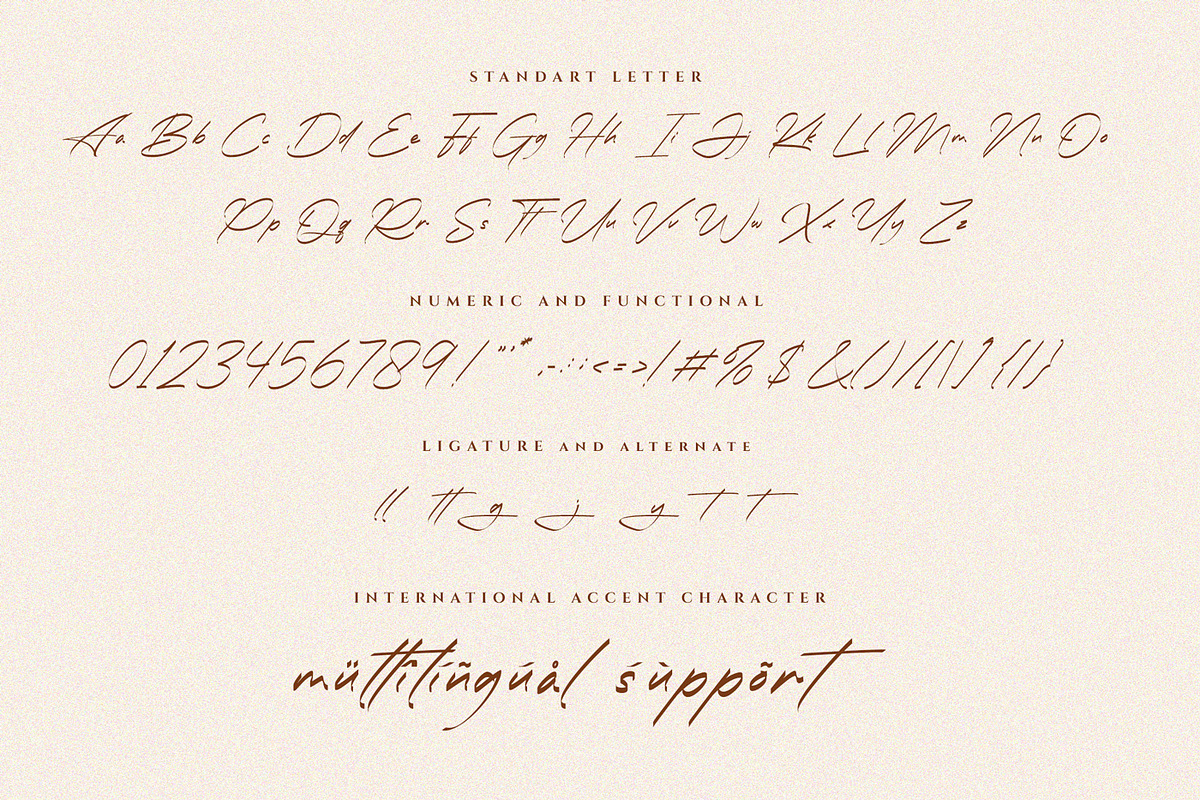 STANDART LETTER
Aa Bb Cc Dd Ee Ff Gg Hh Ii Jj Kk Ll Mm Nn Oo
Pp Qq Rr Ss Tt Uu Vv Ww Xx Yy Zz
NUMERIC AND FUNCTIONAL
0123456789!"'*,-.:;<=>/#%$&()/[\]?{|}
LIGATURE AND ALTERNATE
ll tt g j y t t
INTERNATIONAL ACCENT CHARACTER
mültîlíñgúål śùppõrt